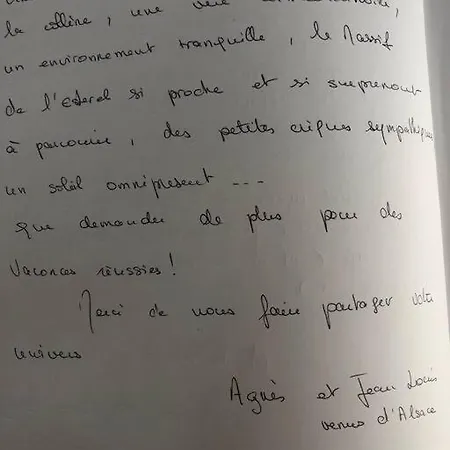 la colline, une vue
un environnement tranquille, le Massif
de l'Esterel si proche et si surprenant
à parcourir, des petites criques sympathiques
un soleil omniprésent ---
que demander de plus pour des
vacances réussies !
Merci de nous faire partager votre
univers
Agnès et Jean Louis
venus d'Alsace